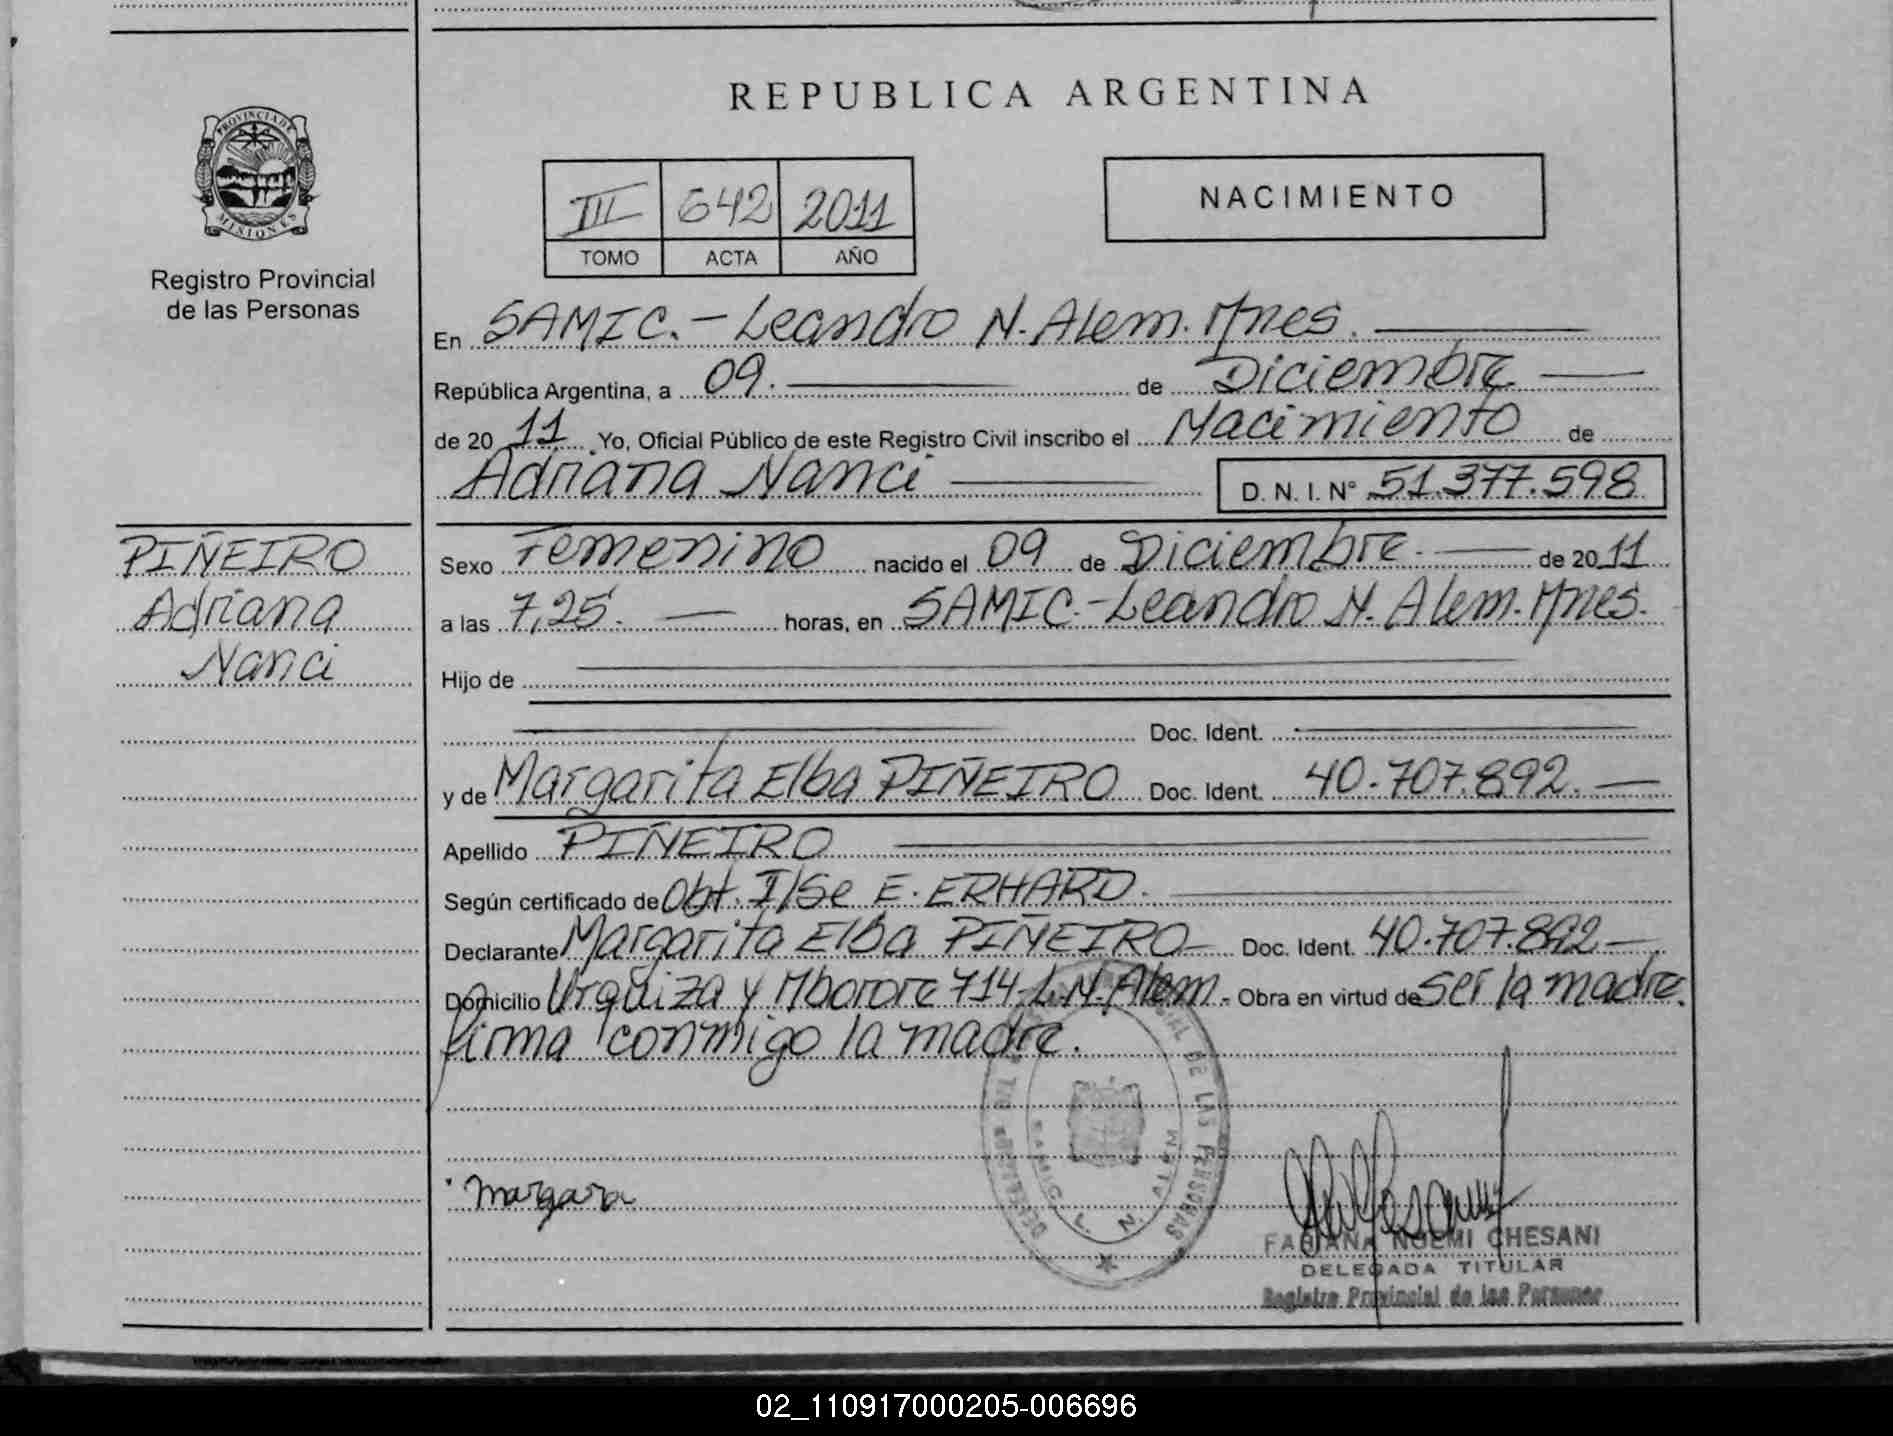 REPUBLICA ARGENTINA
PROVINCIA DE MISIONES
Registro Provincial
de las Personas
III 642 2011
TOMO ACTA AÑO
NACIMIENTO
En SAMIC.- Leandro N. Alem. Mnes.
República Argentina, a 09. de Diciembre
de 20 11 Yo, Oficial Público de este Registro Civil inscribo el Nacimiento de
Adriana Nanci D. N. I. N° 51.377.598
PIÑEIRO
Adriana
Nanci
Sexo Femenino nacido el 09 de Diciembre de 20 11
a las 7,25. horas, en SAMIC.-Leandro N. Alem. Mnes.
Hijo de
Doc. Ident.
y de Margarita Elba PIÑEIRO Doc. Ident. 40.707.892.
Apellido PIÑEIRO
Según certificado de Obt. Ilse E. ERHARD.
Declarante Margarita Elba PIÑEIRO Doc. Ident. 40.707.892
Domicilio Urquiza y Mborore 714-L.N.Alem.- Obra en virtud de ser la madre.
firma conmigo la madre.
DE LAS PERSONAS
SAMIC L. N. ALEM
margara
FABIANA NOEMI CHESANI
DELEGADA TITULAR
Registro Provincial de las Personas
02_110917000205-006696